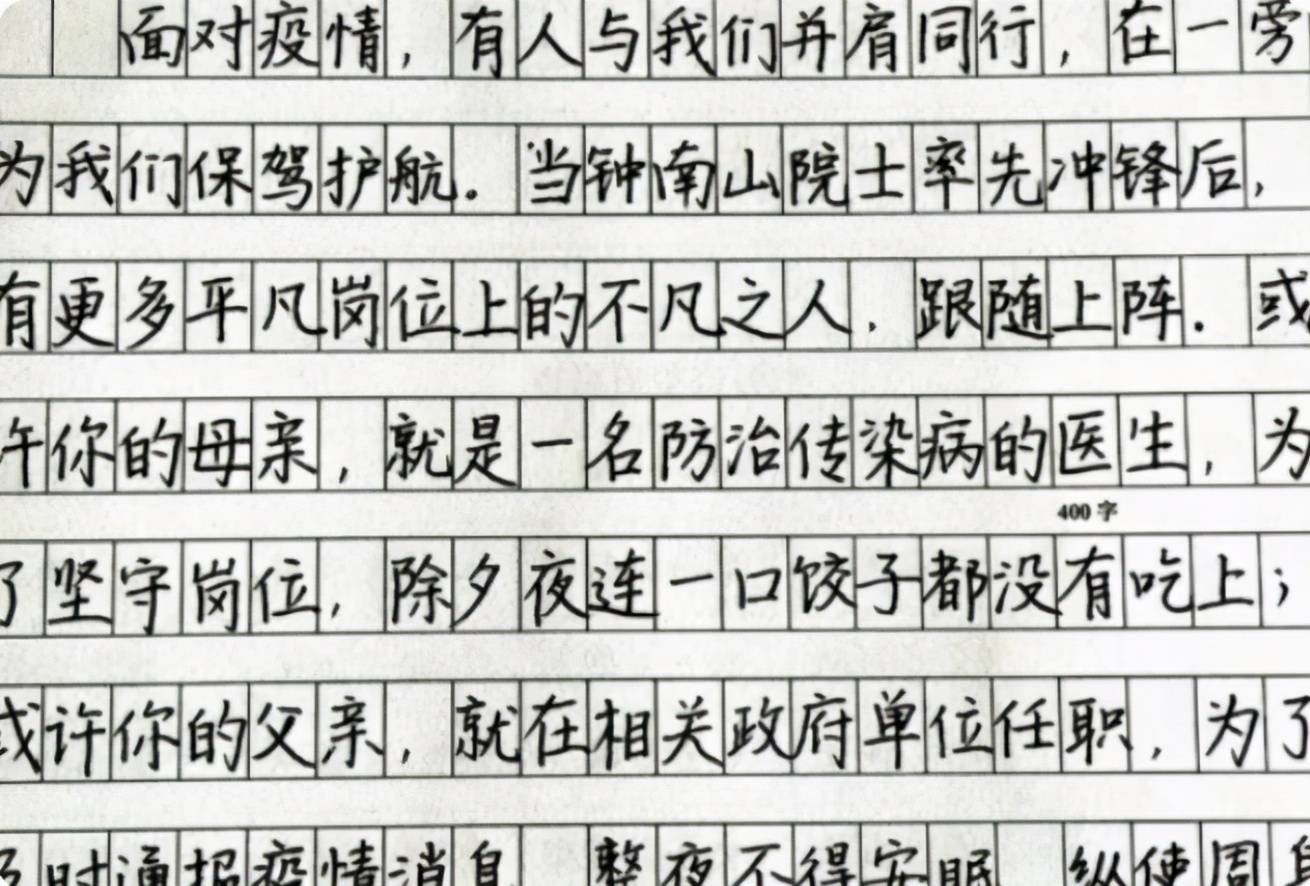 面对疫情，有人与我们并肩同行，在一旁
为我们保驾护航。当钟南山院士率先冲锋后，
有更多平凡岗位上的不凡之人，跟随上阵．或
许你的母亲，就是一名防治传染病的医生，为
400字
了坚守岗位，除夕夜连一口饺子都没有吃上；
或许你的父亲，就在相关政府单位任职，为了
及时通报疫情消息 整夜不得安眠 纵使周